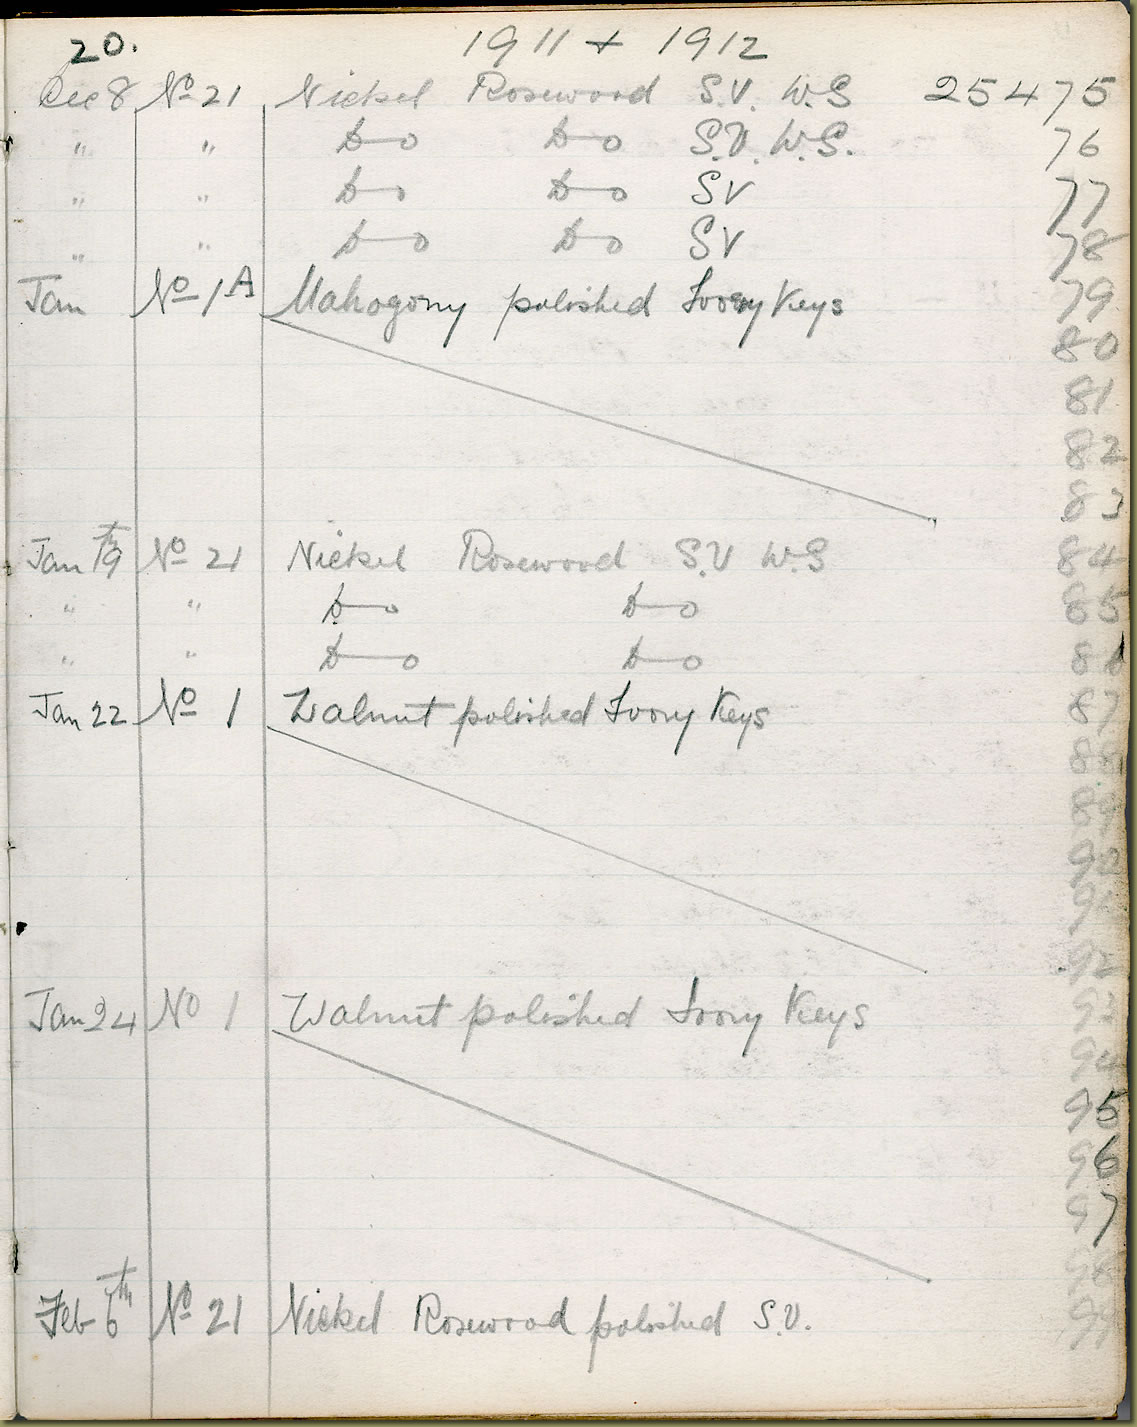 20. 1911 + 1912
Dec 8 No 21 Nickel Rosewood S.V. W.S 25475
" " Do Do S.V. W.S. 76
" " Do Do SV 77
" " Do Do SV 78
Jan No 1A Mahogony polished Ivory Keys 79
80
81
82
83
Jan 19th No 21 Nickel Rosewood S.V W.S 84
" " Do Do 85
" " Do Do 86
Jan 22 No 1 Walnut polished Ivory Keys 87
88
89
90
91
92
Jan 24 No 1 Walnut polished Ivory Keys 93
94
95
96
97
98
Feb 6th No 21 Nickel Rosewood polished S.V. 99